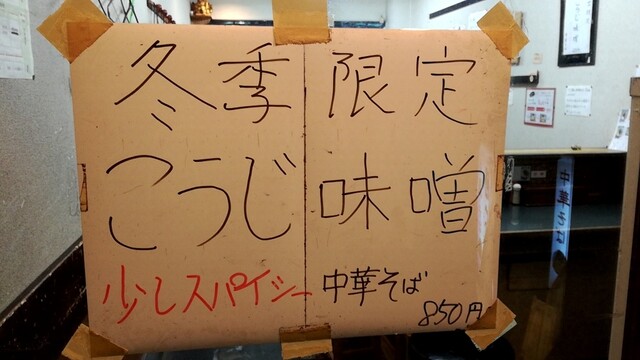 冬季限定
こうじ味噌
少しスパイシー中華そば
850円